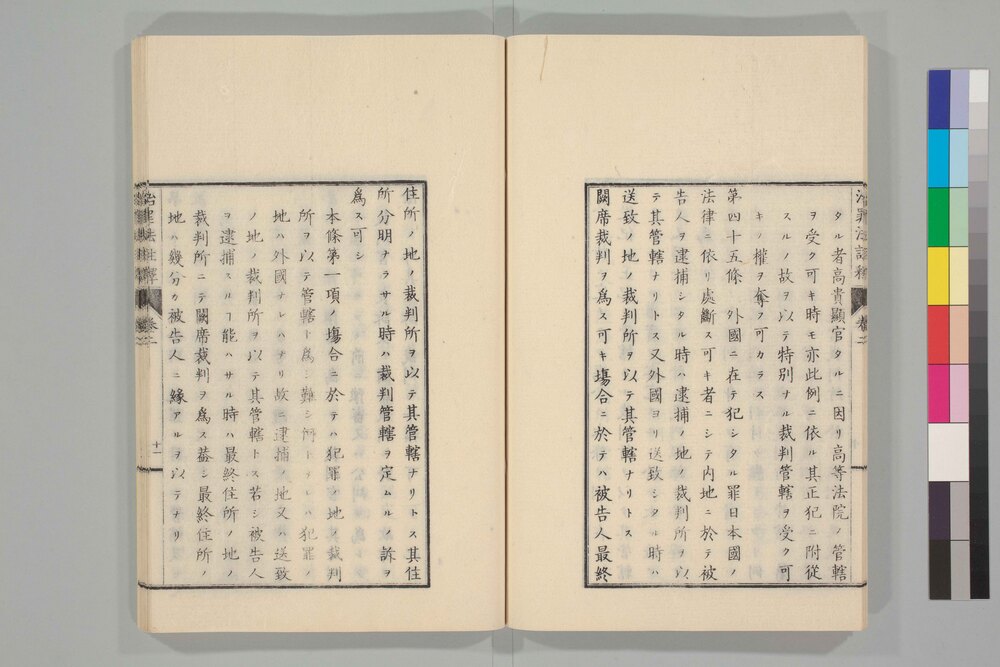 タル者高貴顯官タルニ因リ高等法院ノ管轄
ヲ受ク可キ時モ亦此例ニ依ル其正犯ニ附從
スルノ故ヲ以テ特別ナル裁判管轄ヲ受ク可
キノ權ヲ奪フ可カラス
第四十五條 外國ニ在テ犯シタル罪日本國ノ
法律ニ依リ處斷ス可キ者ニシテ内地ニ於テ被
告人ヲ逮捕シタル時ハ逮捕ノ地ノ裁判所ヲ以
テ其管轄ナリトス又外國ヨリ送致シタル時ハ
送致ノ地ノ裁判所ヲ以テ其管轄ナリトス
闕席裁判ヲ爲ス可キ塲合ニ於テハ被告人最終
住所ノ地ノ裁判所ヲ以テ其管轄ナリトス其住
所分明ナラサル時ハ裁判管轄ヲ定ムルノ訴ヲ
爲ス可シ
本條第一項ノ塲合ニ於テハ犯罪ノ地ノ裁判
所ヲ以テ管轄ト爲シ難シ何トナレハ犯罪ノ
地ハ外國ナレハナリ故ニ逮捕ノ地又ハ送致
ノ地ノ裁判所ヲ以テ其管轄トス若シ被告人
ヲ逮捕スルヿ能ハサル時ハ最終住所ノ地ノ
裁判所ニテ闕席裁判ヲ爲ス蓋シ最終住所ノ
地ハ幾分カ被告人ニ縁アルヲ以テナリ
治罪法註釋 卷二
十一